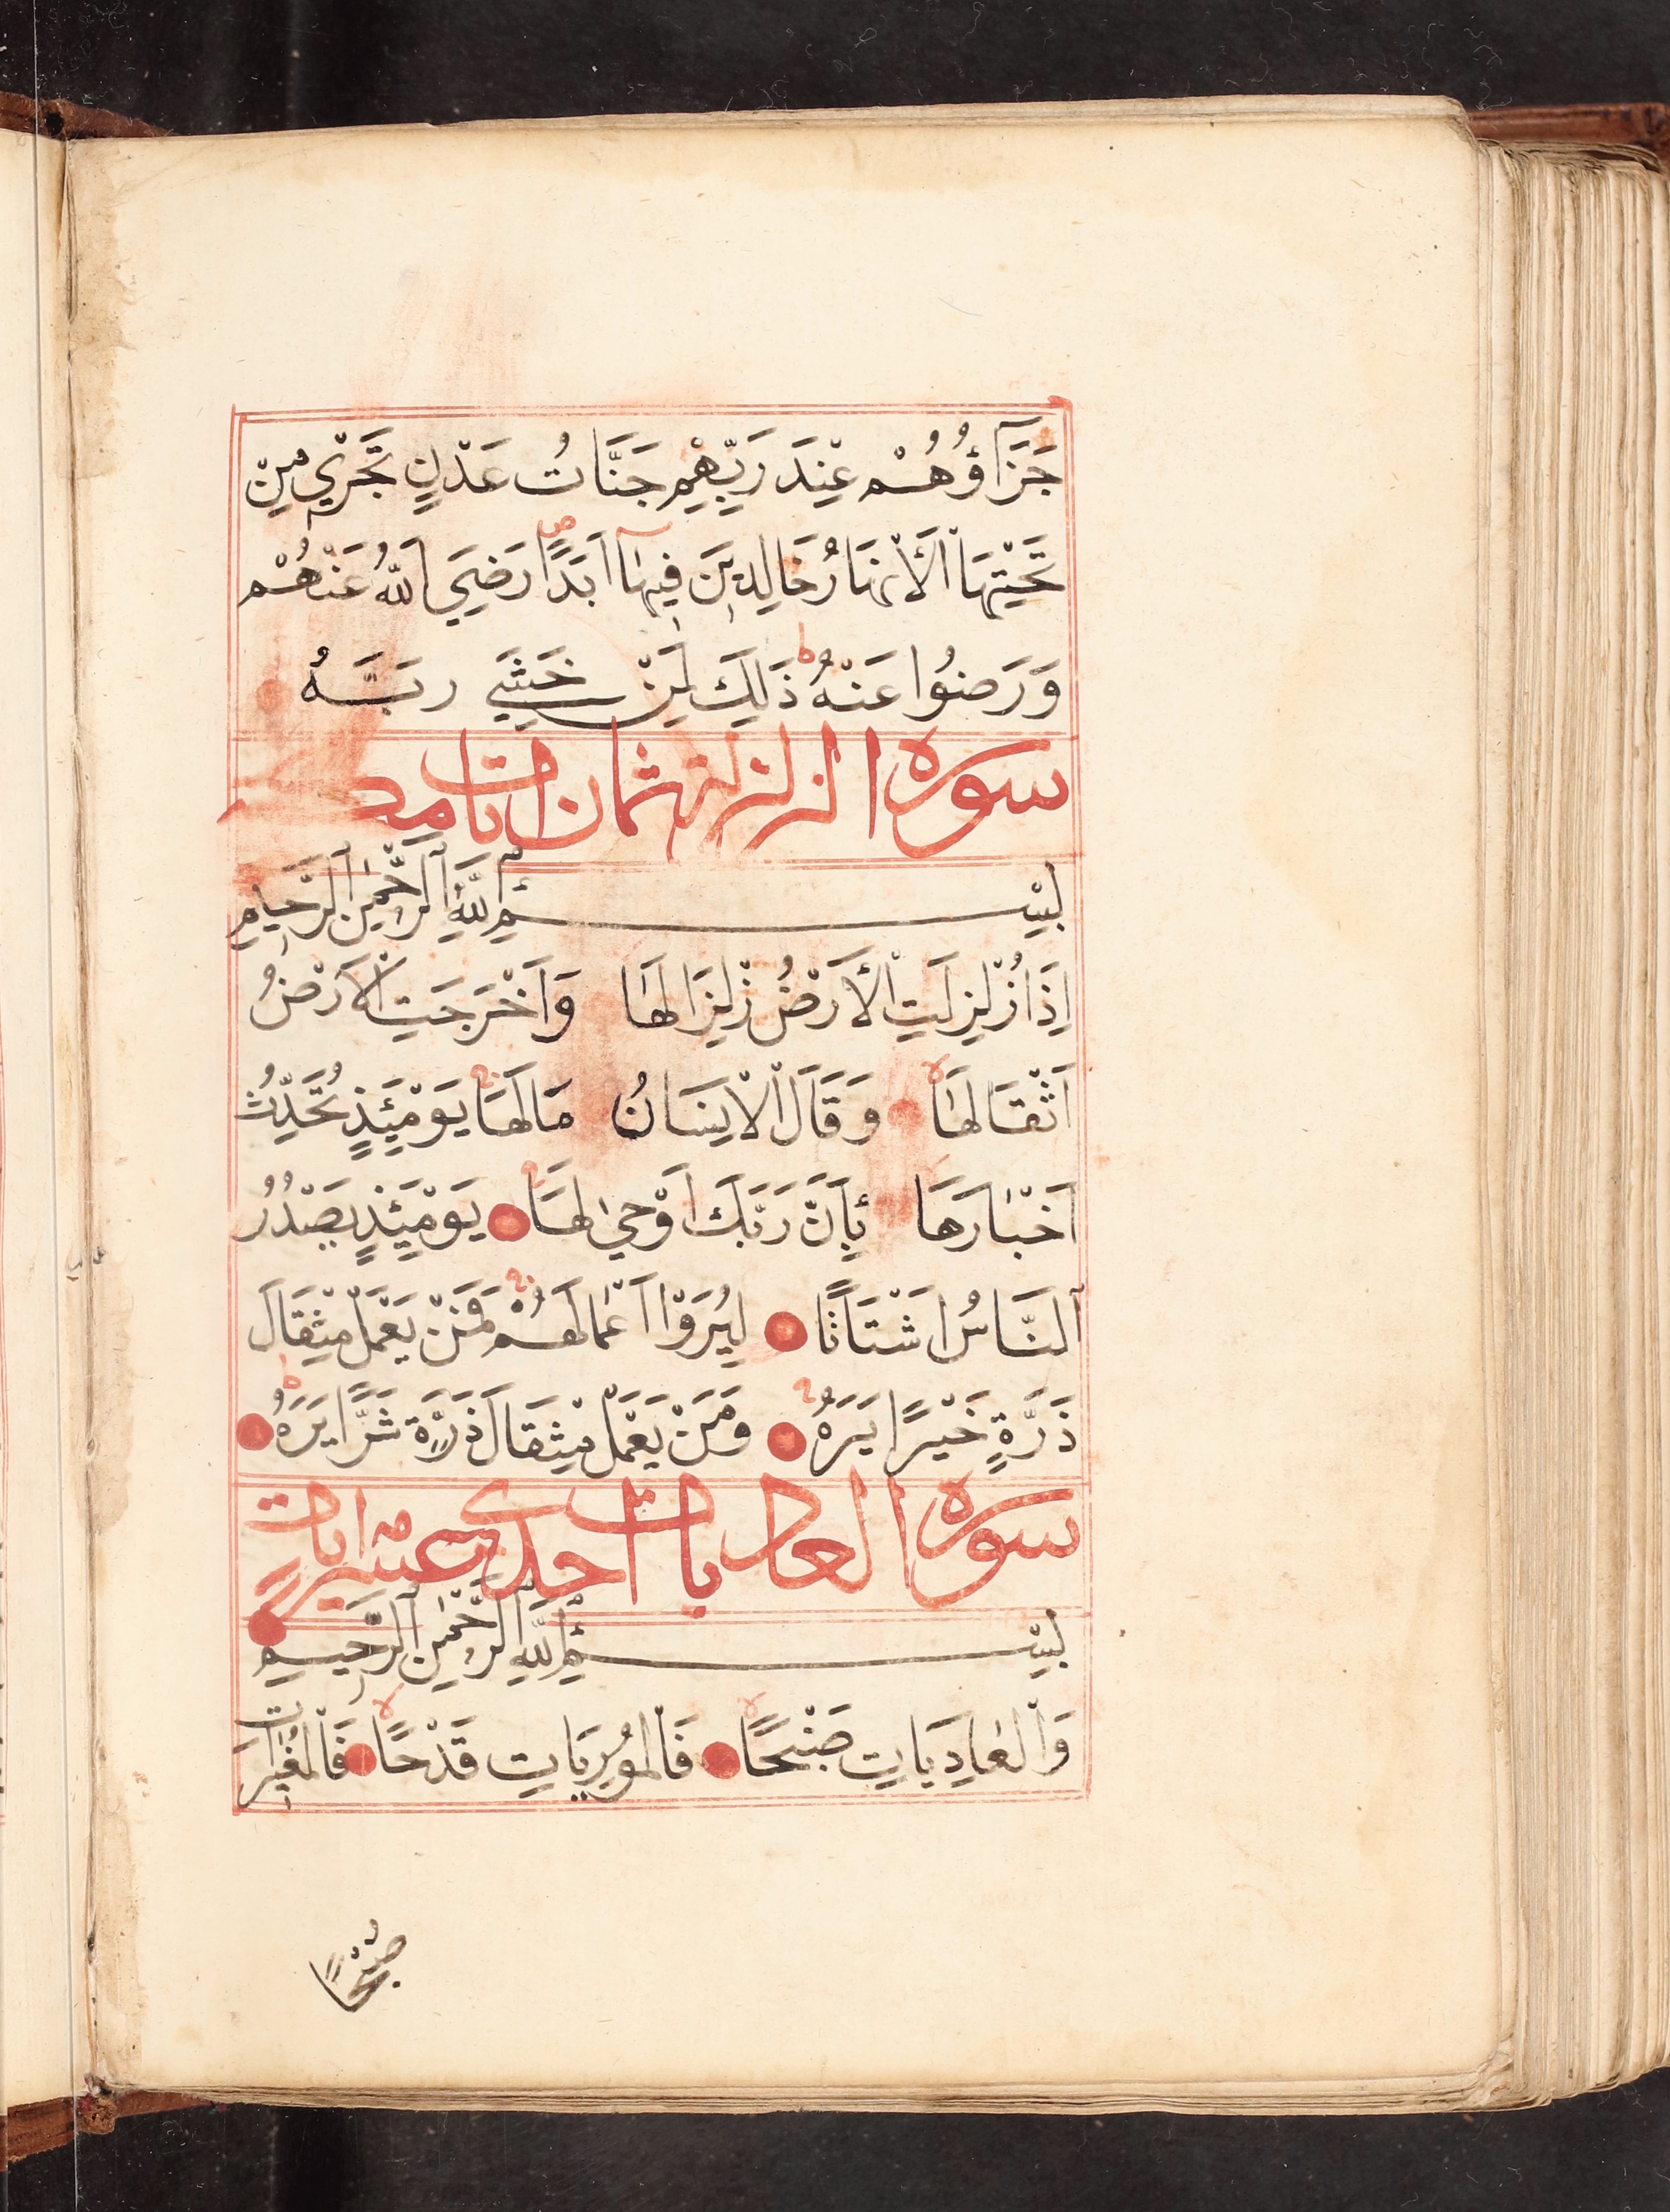 جَزَآؤُهُمْ عِنْدَ رَبِّهِمْ جَنَّاتُ عَدْنٍ تَجْرِي مِنْ
تَحْتِهَا الْأَنْهَارُ خَالِدِينَ فِيهَا اَبَدًا رَضِيَ اللّٰهُ عَنْهُمْ
وَرَضُوا عَنْهُ ذَلِكَ لِمَنْ خَشِيَ رَبَّهُ
سورة الزلزلة ثمان ايات
بِسْمِ اللّٰهِ الرَّحْمٰنِ الرَّحِيمِ
اِذَا زُلْزِلَتِ الْأَرْضُ زِلْزَالَهَا وَاَخْرَجَتِ الْاَرْضُ
اَثْقَالَهَا وَقَالَ الْاِنْسَانُ مَالَهَا يَوْمَئِذٍ تُحَدِّثُ
اَخْبَارَهَا بِاَنَّ رَبَّكَ اَوْحٰى لَهَا يَوْمَئِذٍ يَصْدُرُ
النَّاسُ اَشْتَاتًا لِيُرَوْا اَعْمَالَهُمْ فَمَنْ يَعْمَلْ مِثْقَالَ
ذَرَّةٍ خَيْرًا يَرَهُ وَمَنْ يَعْمَلْ مِثْقَالَ ذَرَّةٍ شَرًّا يَرَهُ
سورة العاديات احدى عشر ايات
بِسْمِ اللّٰهِ الرَّحْمٰنِ الرَّحِيمِ
وَالْعَادِيَاتِ ضَبْحًا فَالْمُورِيَاتِ قَدْحًا فَالْمُغِيرَاتِ
صُبْحًا